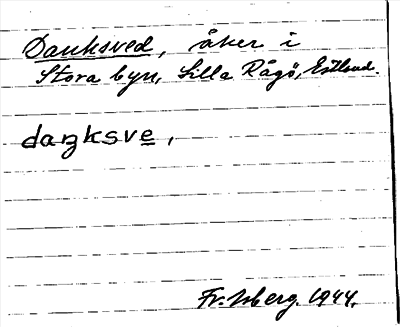 Danksved, åker i
Stora byn, Lilla Rågö, Estland.
daŋksve,
Fr. Isberg. 1944.